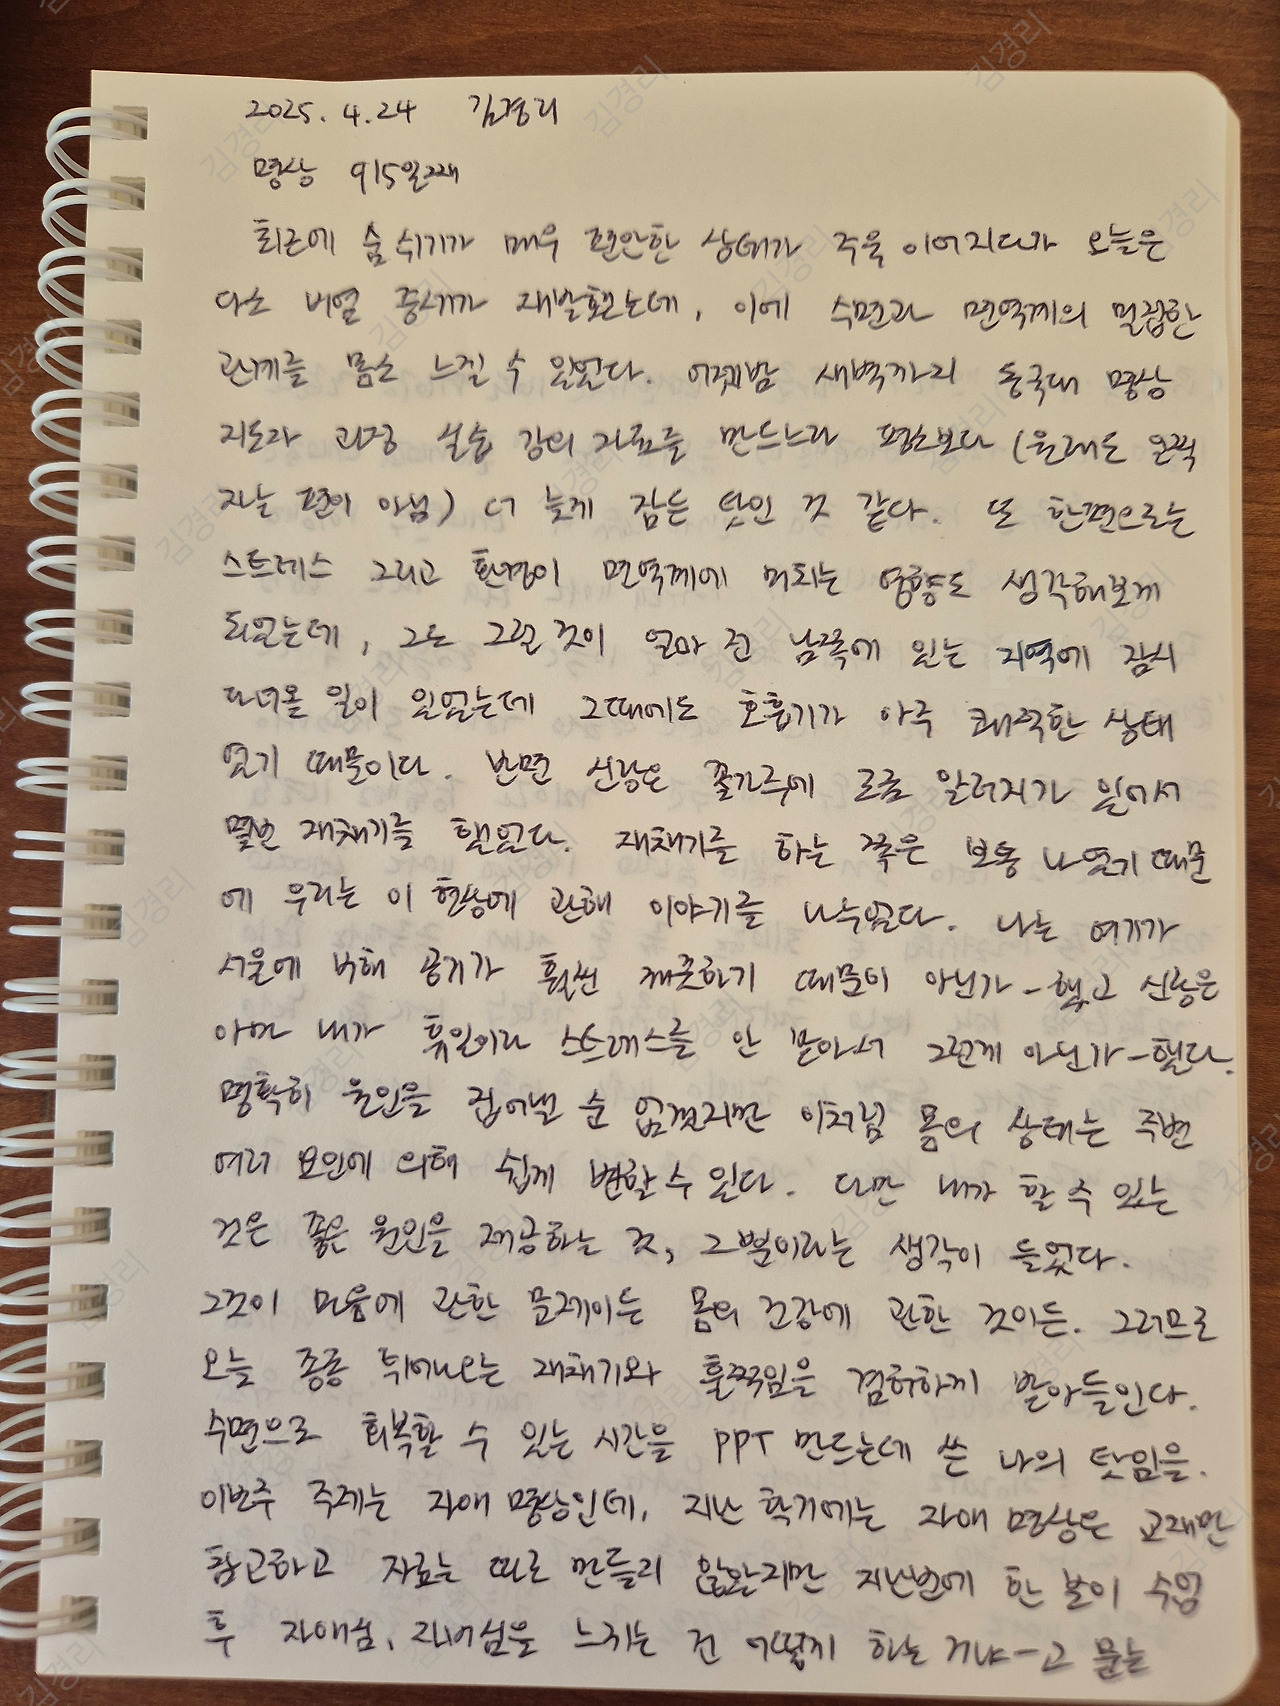 2025. 4. 24 김경리
명상 915일째
최근에 숨 쉬기가 매우 편안한 상태가 주욱 이어지다가 오늘은
다소 비염 증세가 재발했는데, 이에 수면과 면역계의 밀접한
관계를 몸소 느낄 수 있었다. 어젯밤 새벽까지 동국대 명상
지도자 과정 실습 강의 자료를 만드느라 평소보다 (원래도 일찍
자는 편이 아님) 더 늦게 잠든 탓인 것 같다. 또 한편으로는
스트레스 그리고 환경이 면역계에 미치는 영향도 생각해보게
되었는데, 그도 그럴 것이 얼마 전 남쪽에 있는 지역에 잠시
다녀올 일이 있었는데 그때에도 호흡기가 아주 쾌적한 상태
였기 때문이다. 반면 신랑은 꽃가루에 조금 알러지가 있어서
몇번 재채기를 했었다. 재채기를 하는 쪽은 보통 나였기 때문
에 우리는 이 현상에 관해 이야기를 나누었다. 나는 여기가
서울에 비해 공기가 훨씬 깨끗하기 때문이 아닌가-했고 신랑은
아마 내가 휴일이라 스트레스를 안 받아서 그런게 아닌가-했다.
명확히 원인을 집어낼 순 없겠지만 이처럼 몸의 상태는 주변
여러 요인에 의해 쉽게 변할 수 있다. 다만 내가 할 수 있는
것은 좋은 원인을 제공하는 것, 그뿐이라는 생각이 들었다.
그것이 마음에 관한 문제이든 몸의 건강에 관한 것이든. 그러므로
오늘 종종 튀어나오는 재채기와 훌쩍임을 겸허하게 받아들인다.
수면으로 회복할 수 있는 시간을 PPT 만드는데 쓴 나의 탓임을.
이번주 주제는 자애 명상인데, 지난 학기에는 자애 명상은 교재만
참고하고 자료는 따로 만들지 않았지만 지난번에 한 분이 수업
후 자애심, 자비심을 느끼는 건 어떻게 하는 거냐-고 묻는